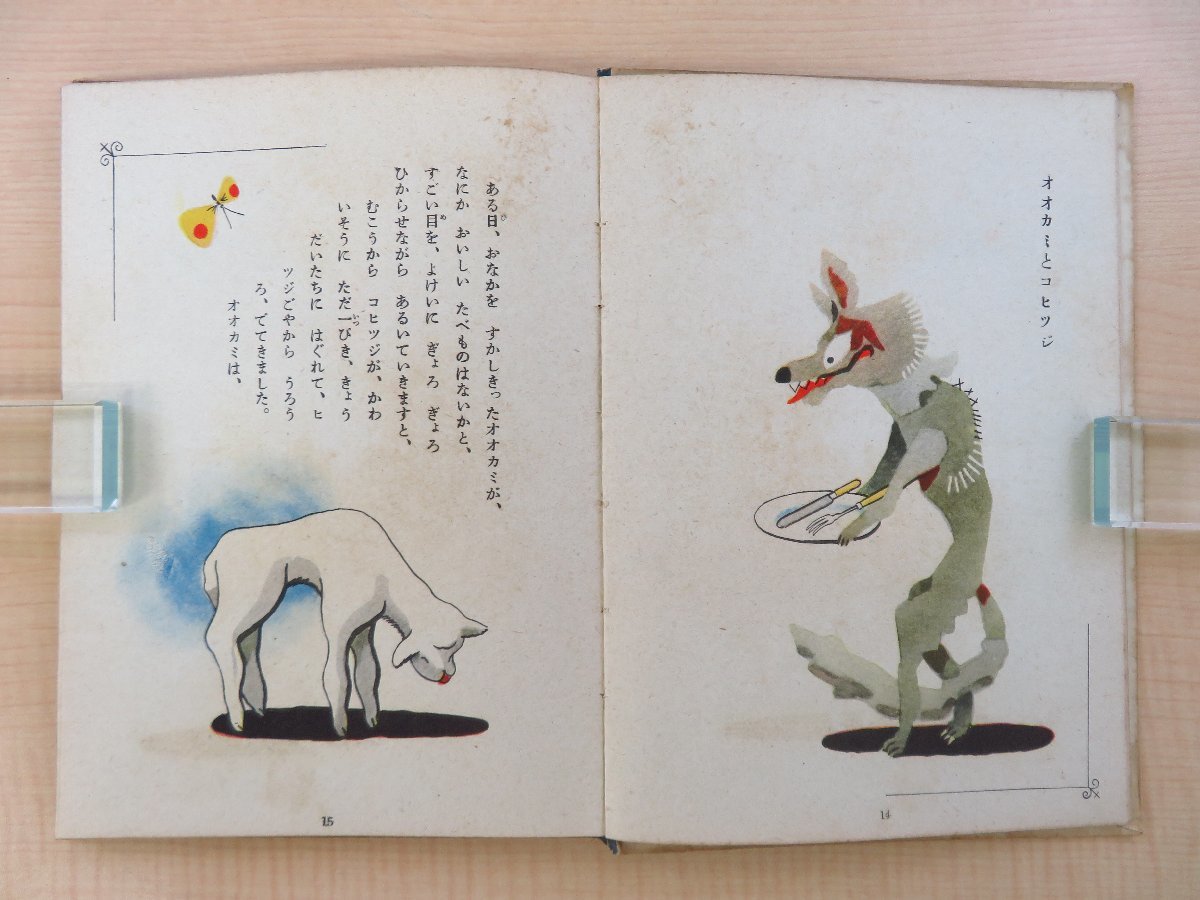 オオカミとコヒツジ
14
ある日、おなかを すかしきったオオカミが、
なにか おいしい たべものはないかと、
すごい目を、よけいに ぎょろ ぎょろ
ひからせながら あるいていきますと、
むこうから コヒツジが、かわ
いそうに ただ一ぴき、きょう
だいたちに はぐれて、ヒ
ツジごやから うろう
ろ、でてきました。
オオカミは、
15